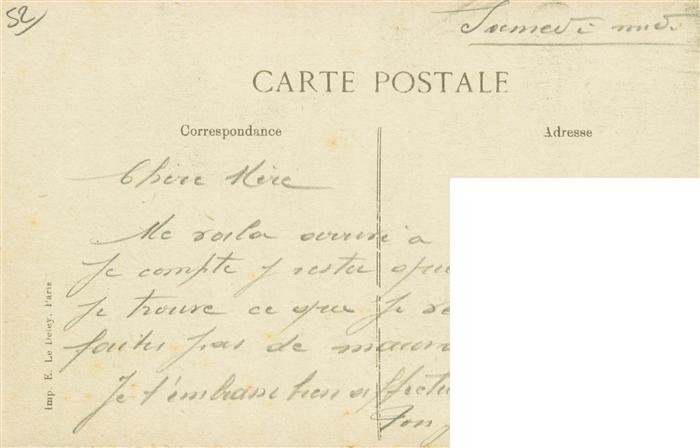 52
Samedi midi
CARTE POSTALE
Correspondance
Adresse
Chère Mère
Me voila arrivé a
Je compte y rester que
Je trouve ce que je
faites pas de
Je t'embrasse bien affectu
Ton
Imp. E. Le Deley, Paris